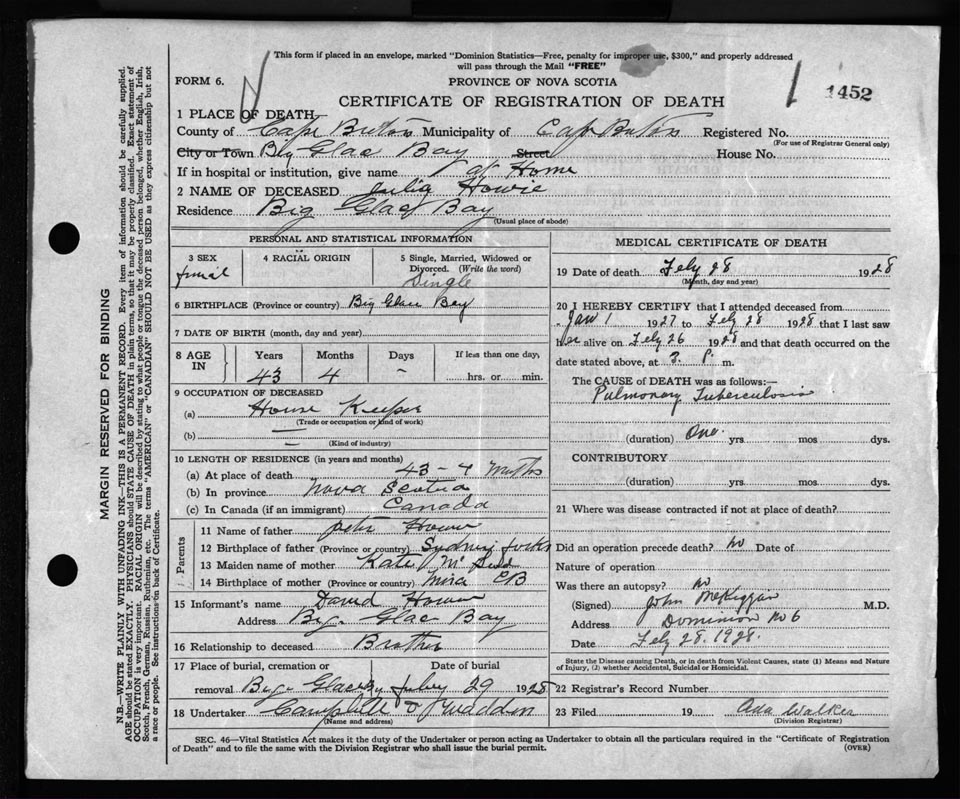 This form if placed in an envelope, marked "Dominion Statistics—Free, penalty for improper use, $300," and properly addressed
will pass through the Mail "FREE"
FORM 6.
PROVINCE OF NOVA SCOTIA
1 1452
CERTIFICATE OF REGISTRATION OF DEATH
1 PLACE OF DEATH
County of Cape Breton Municipality of Cape Breton Registered No.
(For use of Registrar General only)
City or Town Big Glace Bay Street House No.
If in hospital or institution, give name at Home
2 NAME OF DECEASED Julia Howie
Residence Big Glace Bay
(Usual place of abode)
PERSONAL AND STATISTICAL INFORMATION
3 SEX
4 RACIAL ORIGIN
5 Single, Married, Widowed or
Divorced. (Write the word)
Single
6 BIRTHPLACE (Province or country) Big Glace Bay
7 DATE OF BIRTH (month, day and year)
8 AGE IN
Years Months Days If less than one day,
43 4 - hrs. or min.
9 OCCUPATION OF DECEASED
(a) House Keeper
(Trade or occupation or kind of work)
(b) —
(Kind of industry)
10 LENGTH OF RESIDENCE (in years and months)
(a) At place of death 43 - 4 Months
(b) In province Nova Scotia
(c) In Canada (if an immigrant) Canada
Parents
11 Name of father Peter
12 Birthplace of father (Province or country) Sydney Forks
13 Maiden name of mother Kate
14 Birthplace of mother (Province or country) Mira CB
15 Informant's name David
Address Big Glace Bay
16 Relationship to deceased Brother
17 Place of burial, cremation or Date of burial
removal Big Glace By 29 1928
18 Undertaker Campbell
(Name and address)
MEDICAL CERTIFICATE OF DEATH
19 Date of death Feby 28 1928
(Month, day and year)
20 I HEREBY CERTIFY that I attended deceased from
Jan 1 1927 to Feby 28 1928 that I last saw
her alive on Feby 26 1928 and that death occurred on the
date stated above, at 3. P. m.
The CAUSE of DEATH was as follows:—
Pulmonary Tuberculosis
(duration) One. yrs. mos dys.
CONTRIBUTORY
(duration) yrs. mos. dys.
21 Where was disease contracted if not at place of death?
Did an operation precede death? no Date of
Nature of operation
Was there an autopsy? no
(Signed) John McKiggan M.D.
Address Dominion No 6
Date Feby 28. 1928.
State the Disease causing Death, or in death from Violent Causes, state (1) Means and Nature
of Injury, (2) whether Accidental, Suicidal or Homicidal.
22 Registrar's Record Number
23 Filed 19 Ada Walker
(Division Registrar)
SEC. 46—Vital Statistics Act makes it the duty of the Undertaker or person acting as Undertaker to obtain all the particulars required in the "Certificate of Registration
of Death" and to file the same with the Division Registrar who shall issue the burial permit.
(OVER)
MARGIN RESERVED FOR BINDING
N.B.—WRITE PLAINLY WITH UNFADING INK—THIS IS A PERMANENT RECORD. Every item of information should be carefully supplied.
AGE should be stated EXACTLY. PHYSICIANS should STATE CAUSE OF DEATH in plain terms, so that it may be properly classified. Exact statement of
OCCUPATION is very important. RACIAL ORIGIN will be described by stating to what people or tongue the deceased person belonged, whether English, Irish,
Scotch, French, German, Russian, Ruthenian, etc. The terms "AMERICAN" or "CANADIAN" SHOULD NOT BE USED as they express citizenship but not
a race or people. See instructions in back of Certificate.